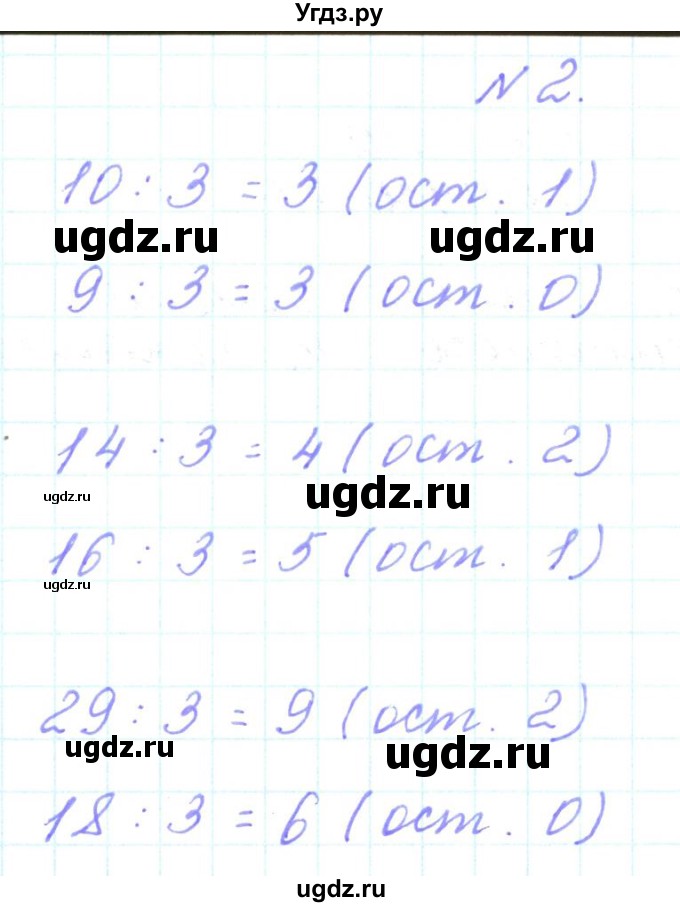 Угдз.ру
N 2.
10 : 3 = 3 (ост. 1)
ugdz.ru ugdz.ru
9 : 3 = 3 (ост. 0)
14 : 3 = 4 (ост. 2)
ugdz.ru ugdz.ru
16 : 3 = 5 (ост. 1)
ugdz.ru
29 : 3 = 9 (ост. 2)
ugdz.ru ugdz.ru
18 : 3 = 6 (ост. 0)
ugdz.ru